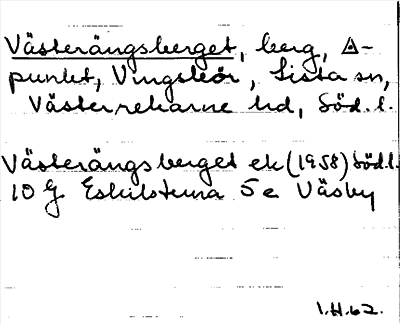 Västerängsberget, berg, △-
punkt, Vingsleör, Lista sn,
Västerrekarne hd, Söd. l.
Västerängsberget ek (1958) Söd. l.
10 G Eskilstuna 5 e Väsby
1.H.62.